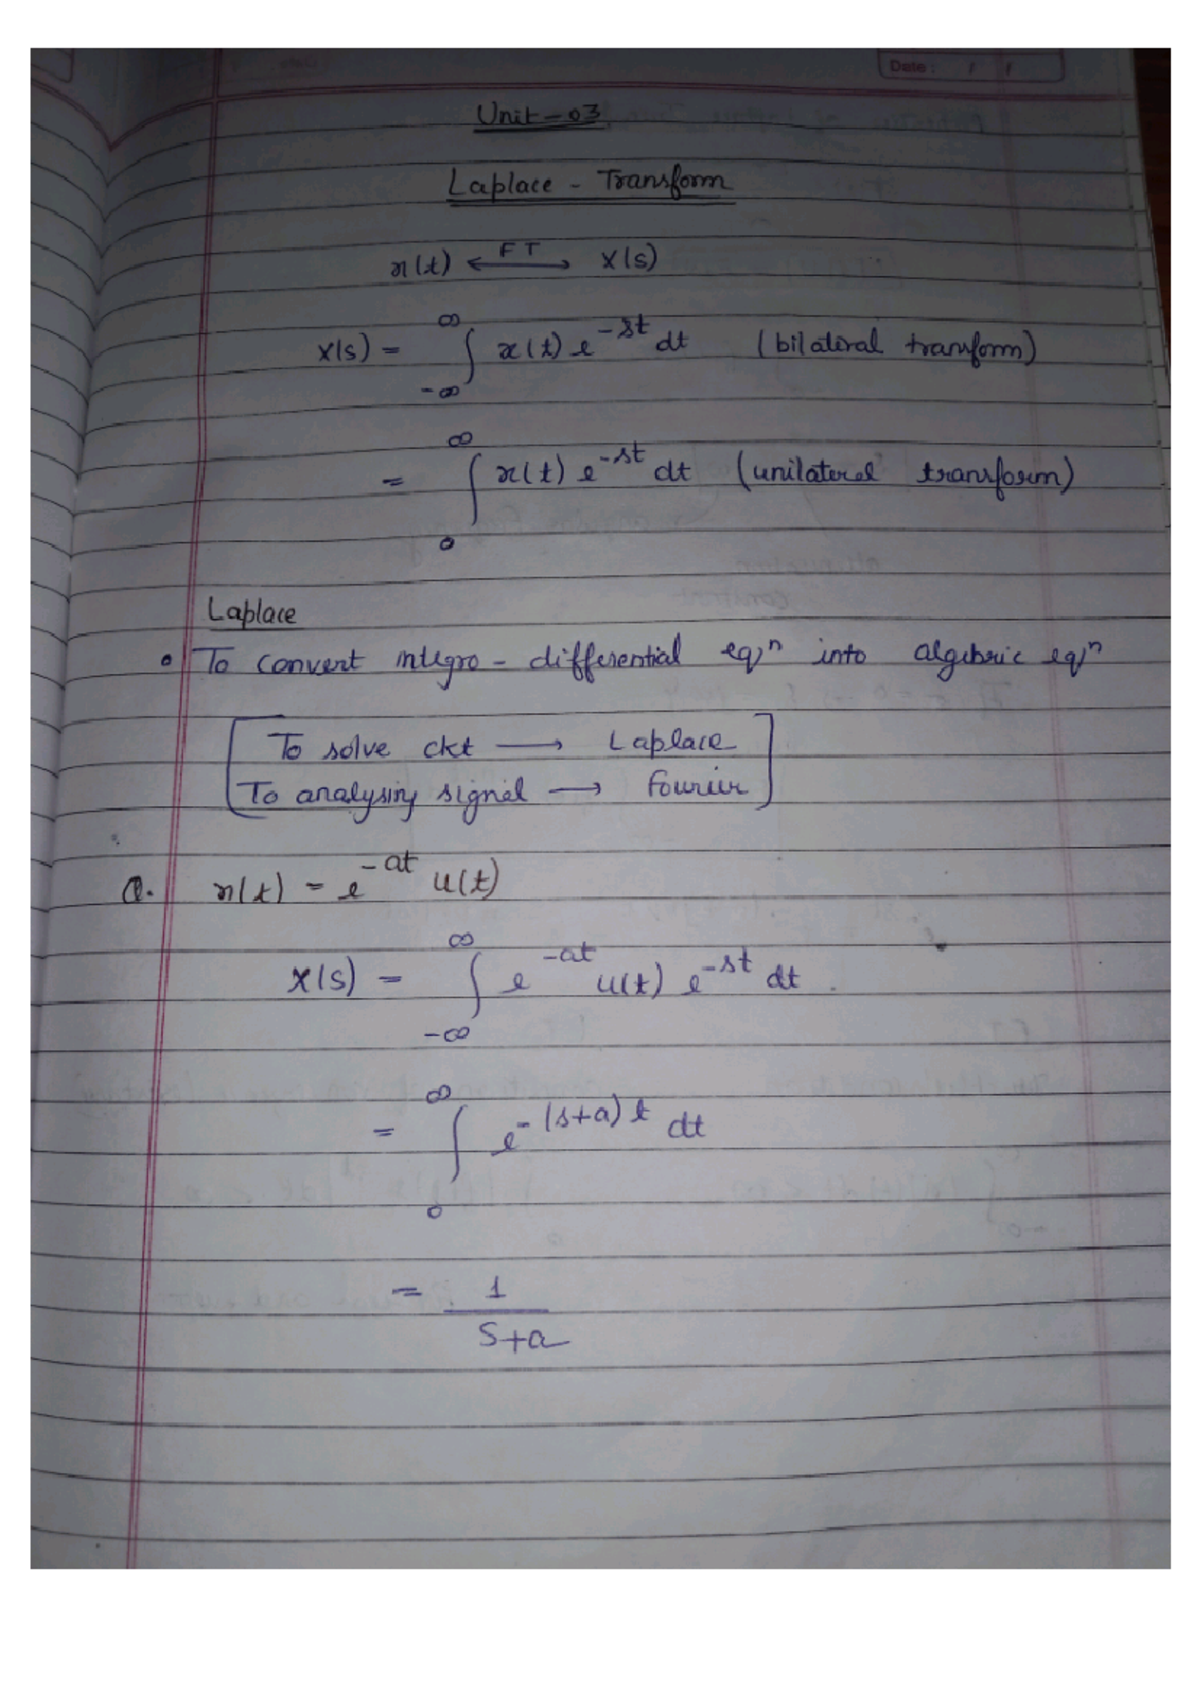 Date: / /
Unit-03
Laplace - Transform
x(t) ←FT→ X(s)
X(s) = ∫_{-∞}^{∞} x(t) e^{-st} dt (bilateral transform)
= ∫_{0}^{∞} x(t) e^{-st} dt (unilateral transform)
Laplace
• To convert integro - differential eqⁿ into algebric eqⁿ
[To solve ckt → Laplace
To analysing signal → Fourier]
Q. x(t) = e^{-at} u(t)
X(s) = ∫_{-∞}^{∞} e^{-at} u(t) e^{-st} dt .
= ∫_{0}^{∞} e^{-(s+a)t} dt
= 1/(s+a)